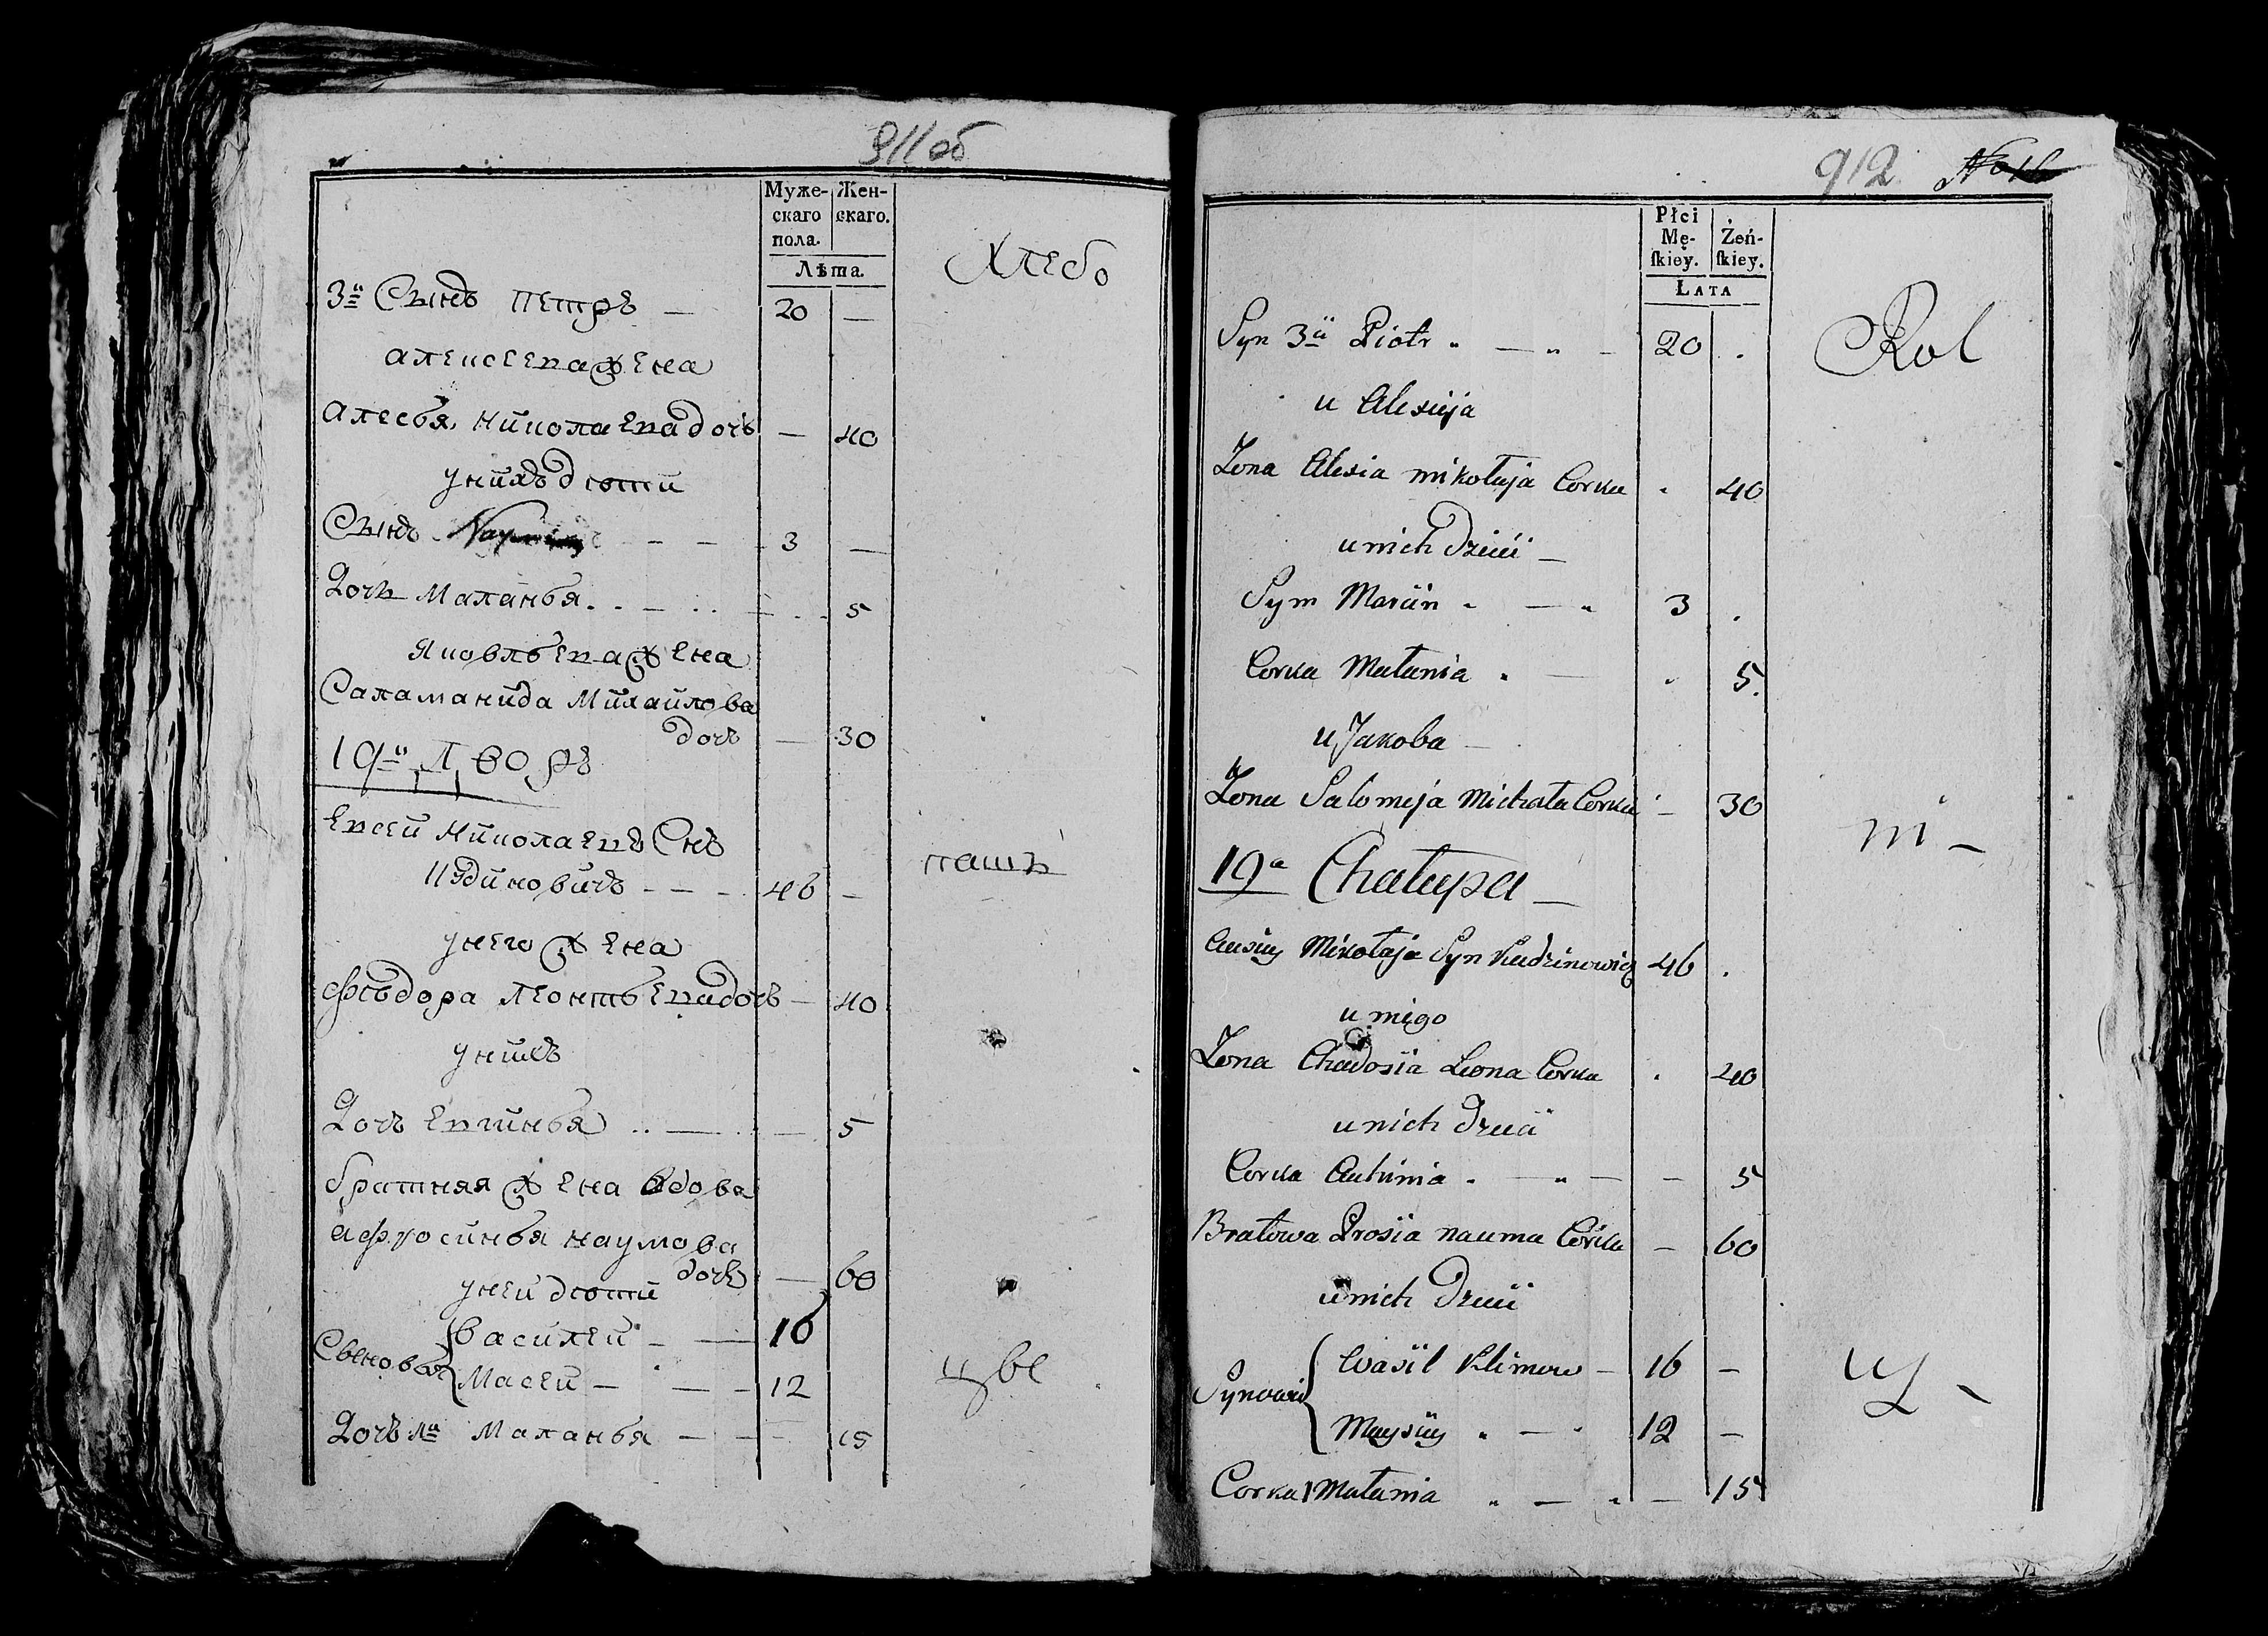 911об
Муже-
скаго
пола.
Жен-
скаго.
Лѣта.
Хлебо
3й Сынъ Петръ — 20 —
Алексеева жена
Алесья Николаева дочь — 40
у нихъ дѣти
Сынъ — — — 3 —
Дочь Маланья 5
Яковлева жена
Саламанида Михайлова
дочь — 30
19й Дворъ
Евсей Николаевъ Снъ
Кудиновичь — — 46 —
пашъ
у него жена
Фѣдора Леонтьева дочь — 40
у нихъ
Дочь Евгинья — — 5
братняя жена вдова
Афросинья Наумова
дочь — 60
у ней дѣти
Сыновья
Василей — — 16
Масей — — — 12
цве
Дочь Маланья — — 15
912
Płci
Mę-
ſkiey.
Żeń-
ſkiey.
Lata
Rol
Syn 3й Piotr — 20
u Alexieja
Zona Alexia mikołaja Corka 40
u nich dzieci —
Syn Marcin — 3
Corka Małania — 5
u Jakoba —
Zona Salomeja Michała Corka — 30
ni —
19a Chałupa —
Mikołaja Syn Kudzinowicz 46
u niego
Zona Chadosia Leona Corka 40
u nich dzieci
Corka Auhinia — — 5
Bratowa Prosia nauma Corka — 60
u nich dzieci
Synowie
Wasil Klimow — 16 —
Maysiey — 12 —
Corka Małania — — 15